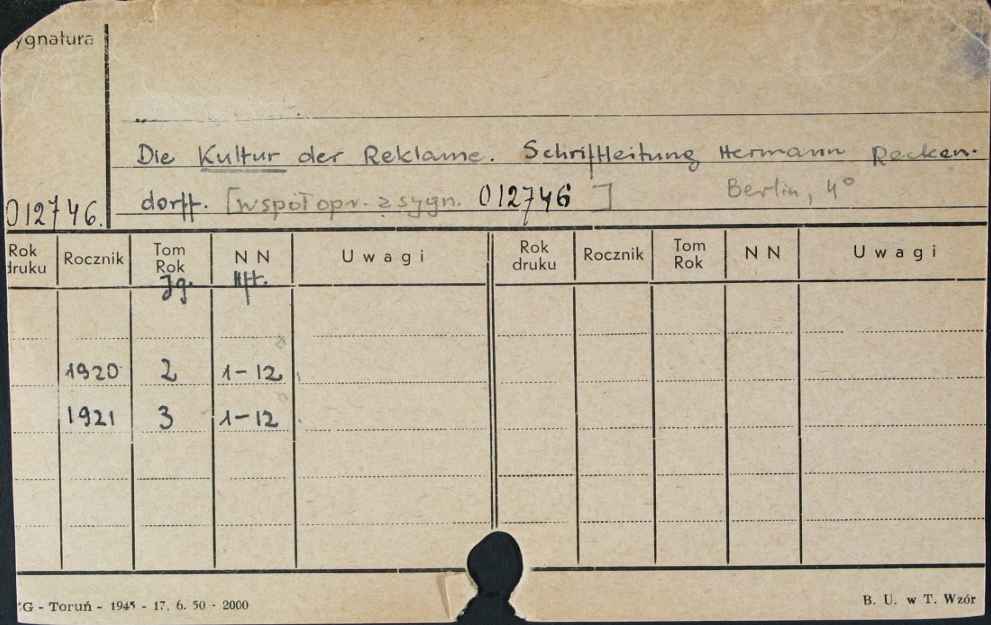 ygnatura
Die Kultur der Reklame. Schriftleitung Hermann Recken-
dorff. [współopr. z sygn. 012746] Berlin, 4°
012746.
Rok druku Rocznik Tom Rok NN Uwagi Rok druku Rocznik Tom Rok NN Uwagi
Jg. Hft.
1920 2 1-12
1921 3 1-12
G - Toruń - 1945 - 17. 6. 50 - 2000 B. U. w T. Wzór